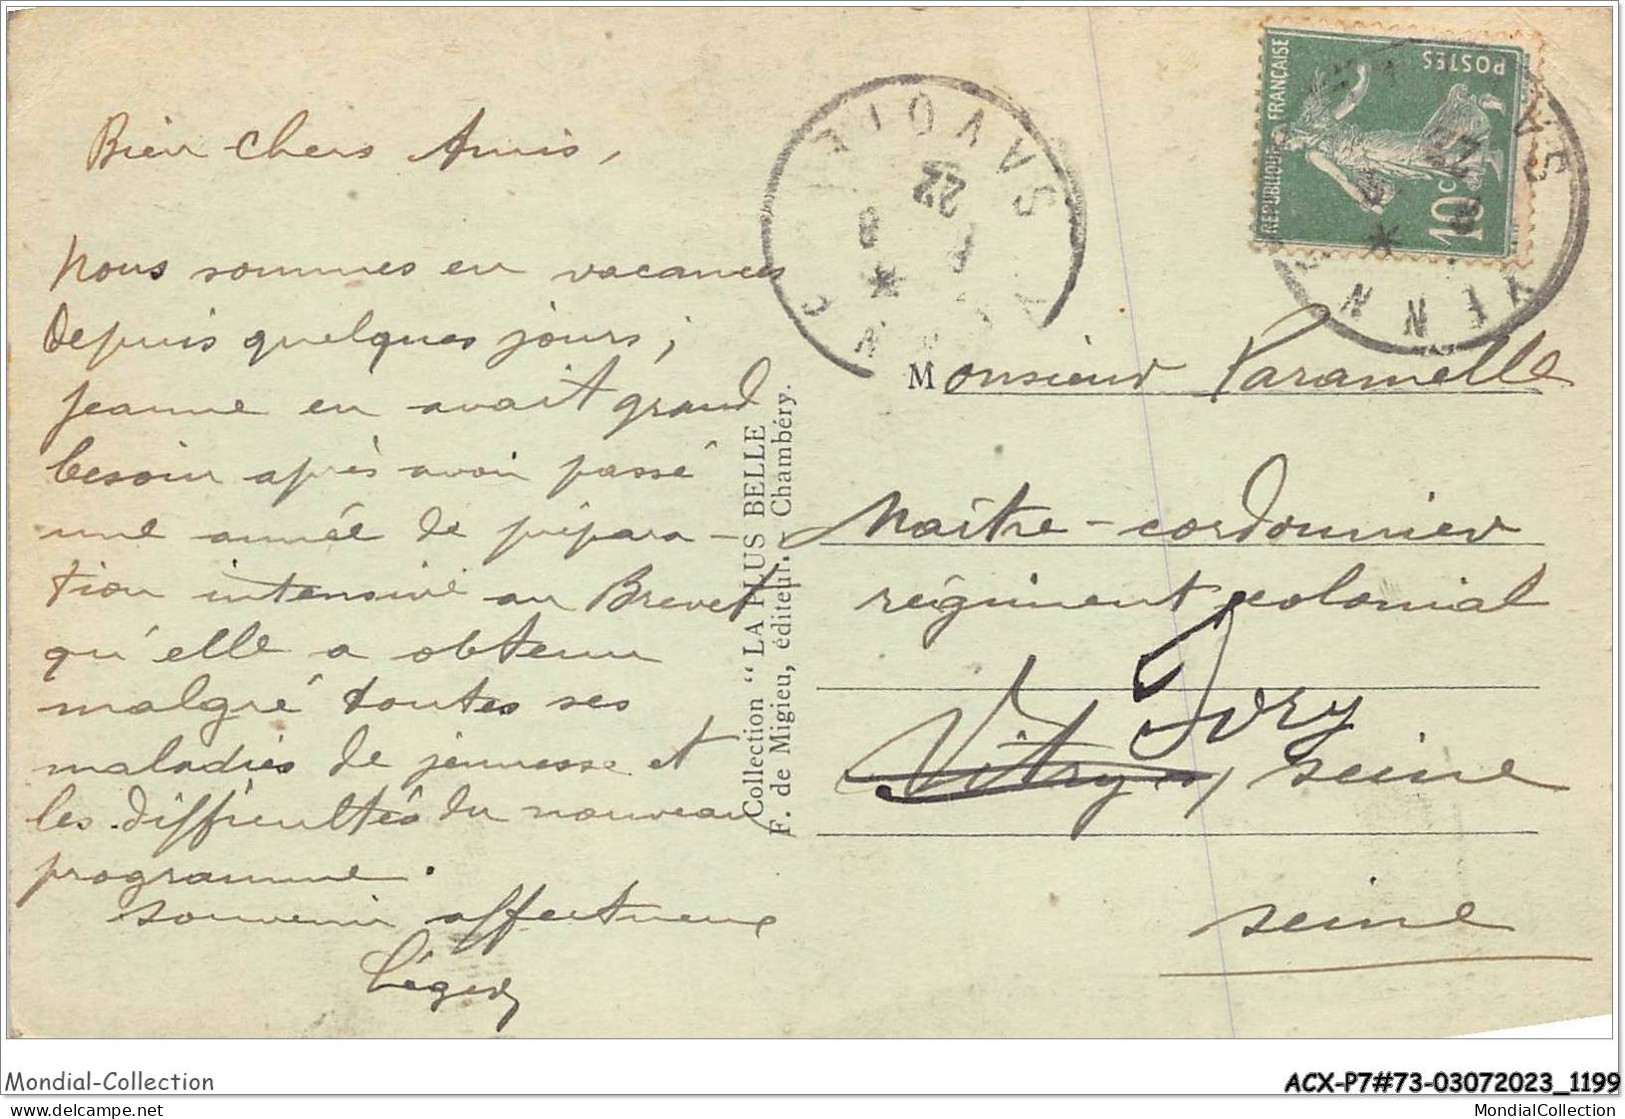 Bien chers Amis,
Nous sommes en vacances
depuis quelques jours ;
Jeanne en avait grand
besoin après avoir passé
une année de prépara-
tion intensive au Brevet
qu'elle a obtenu
malgré toutes ses
maladies de jeunesse et
les difficultés du nouveau
programme.
Souvenir affectueux
Léger
Collection "LA PLUS BELLE"
F. de Migieu, éditeur. Chambéry.
SAVOIE
22
8
REPUBLIQUE FRANÇAISE
POSTES
10c
Monsieur Paramelle
Maître-cordonnier
régiment colonial
Ivry
Vitry, seine
seine
Mondial-Collection
ACX-P7#73-03072023_1199
www.delcampe.net
MondialCollection